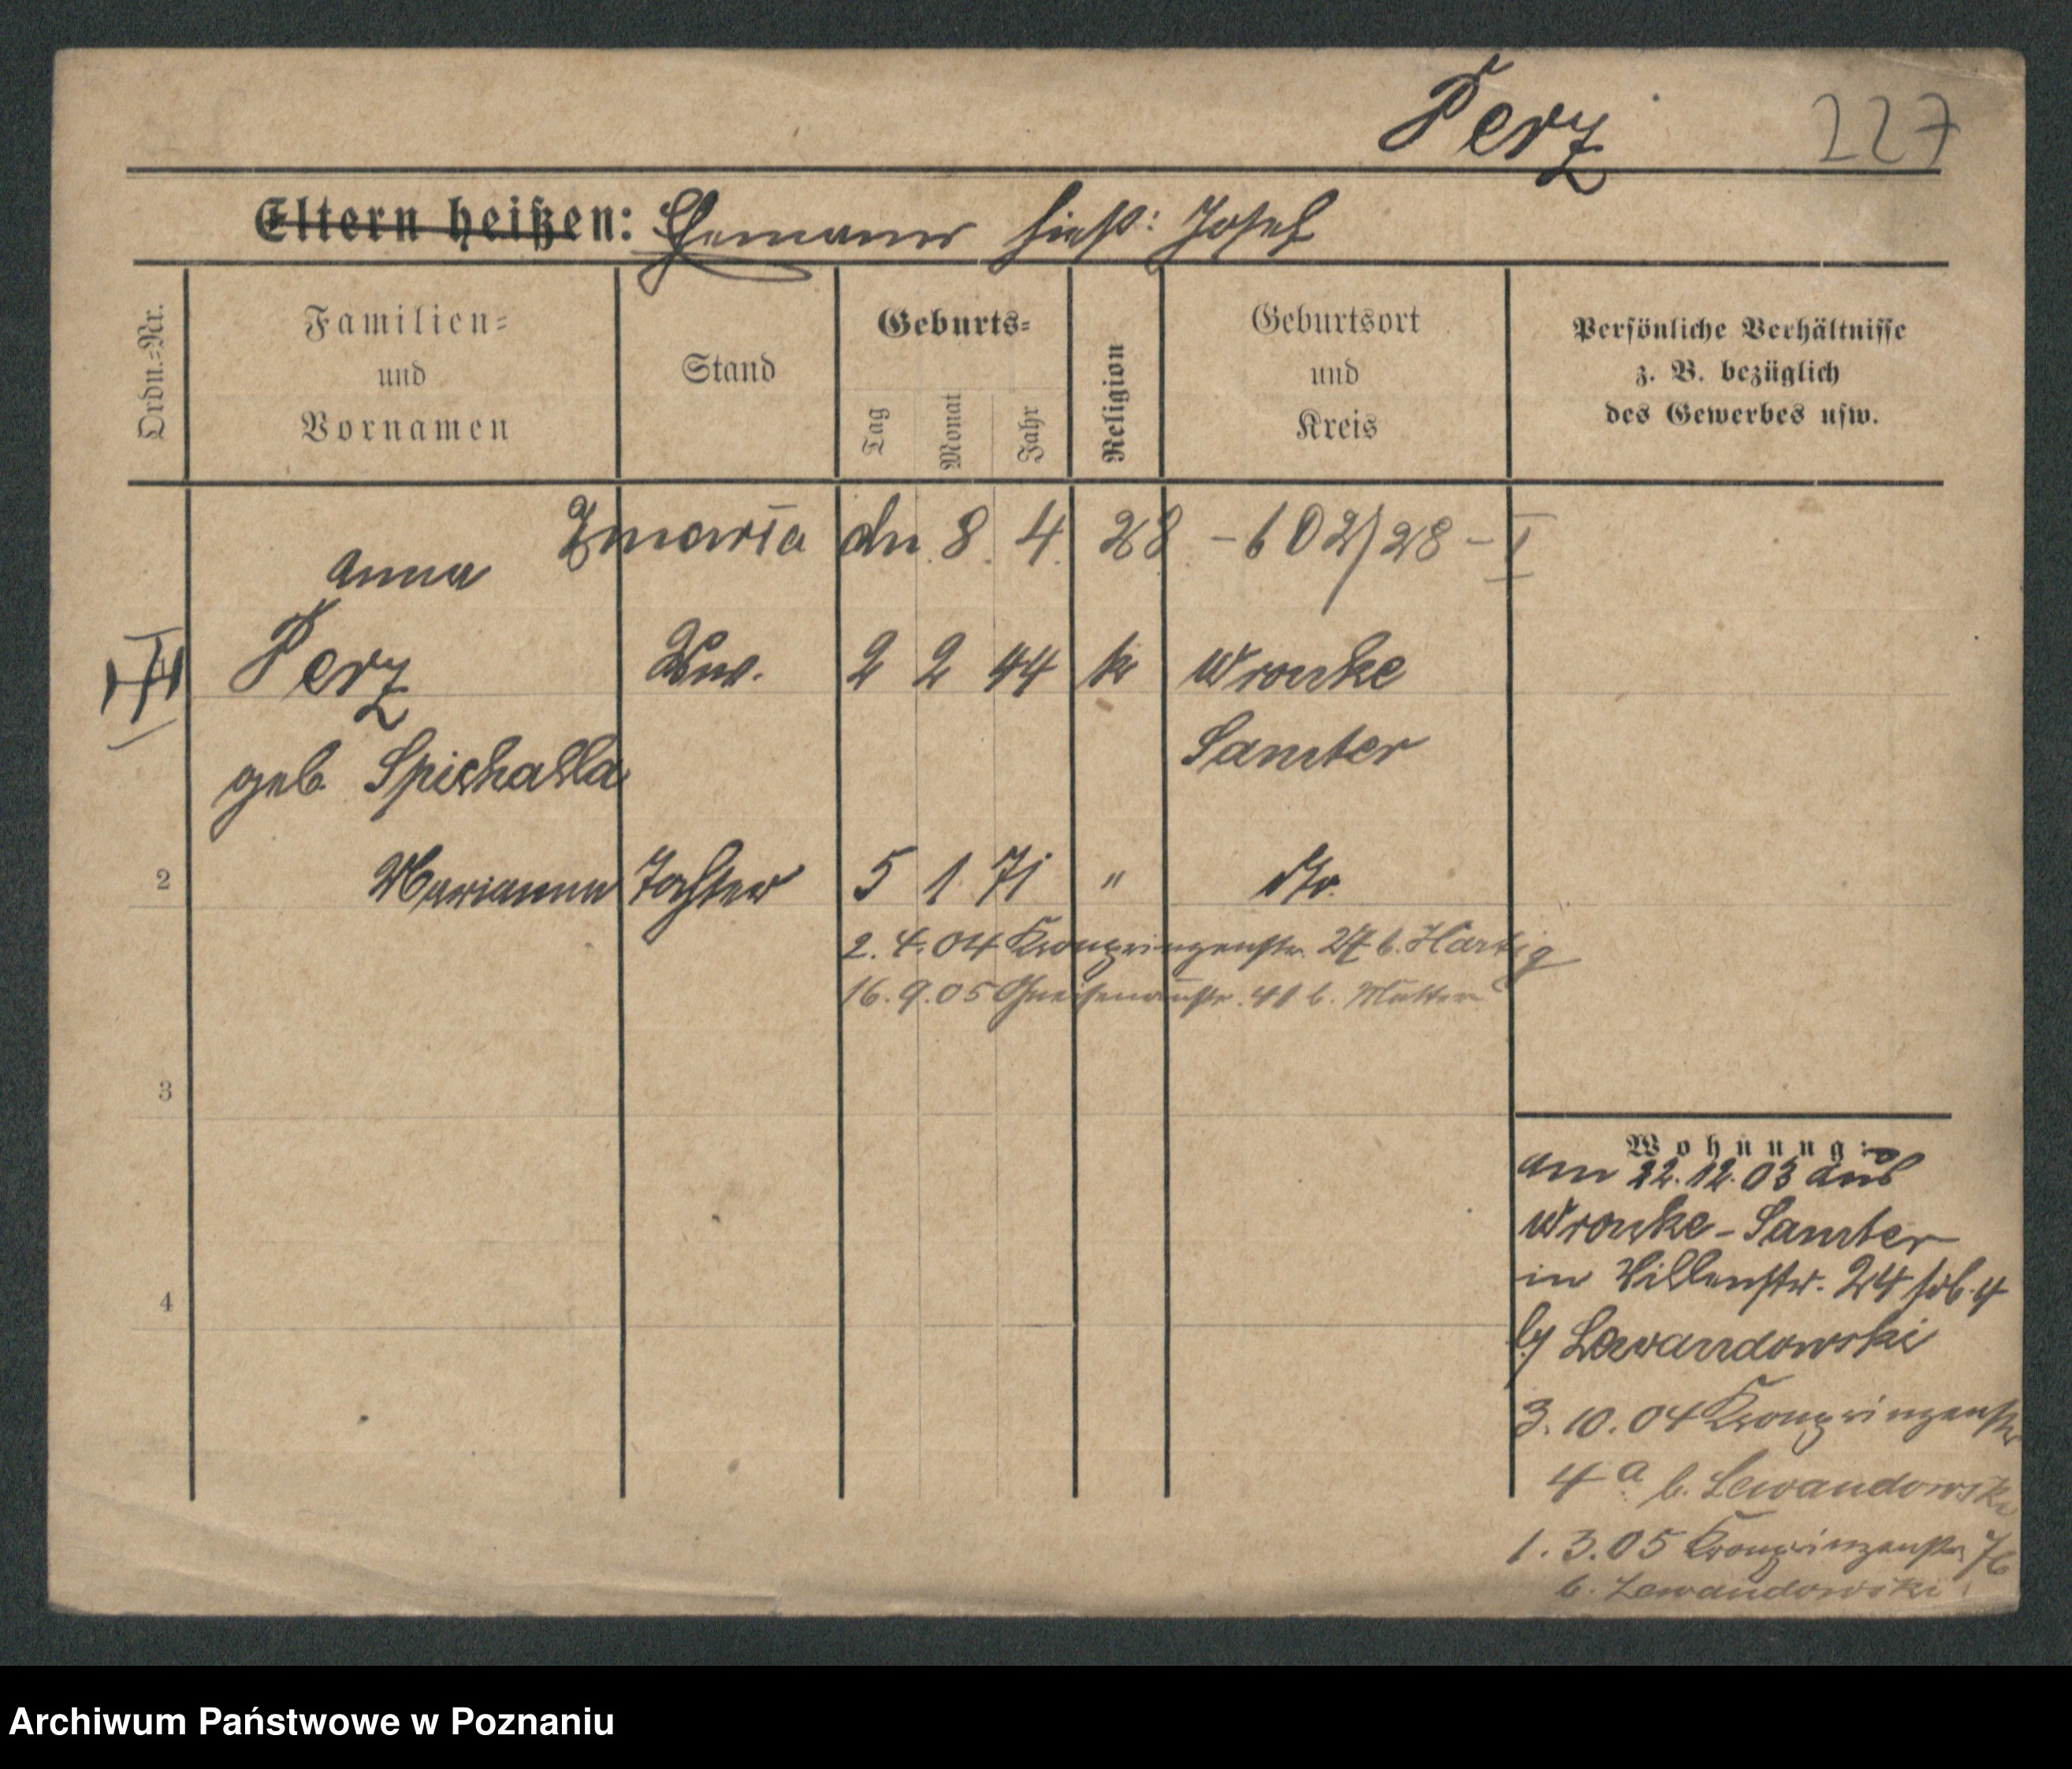 Perz 227
Eltern heißen: Ehemann hieß: Josef
Ordn.=Nr.
Familien=
und
Vornamen
Stand
Geburts=
Tag
Monat
Jahr
Religion
Geburtsort
und
Kreis
Persönliche Verhältnisse
z. B. bezüglich
des Gewerbes usw.
Zmarła dn. 8. 4. 28 – 602/28 – I
Anna
Perz Ww. 2 2 44 k Wronke
geb. Spichalla Samter
2 Marianna Tochter 5 1 71 " dto.
2. 4. 04 Kronprinzenstr. 27 b. Hartig
16. 9. 05 Gneisenaustr. 41 b. Mutter
3
4
Wohnung:
am 22.12.03 aus
Wronke-Samter
in Villenstr. 24
bei Lewandowski
3. 10. 04 Kronprinzenstr
4a b. Lewandowski
1. 3. 05 Kronprinzenstr 76
b. Lewandowski
Archiwum Państwowe w Poznaniu